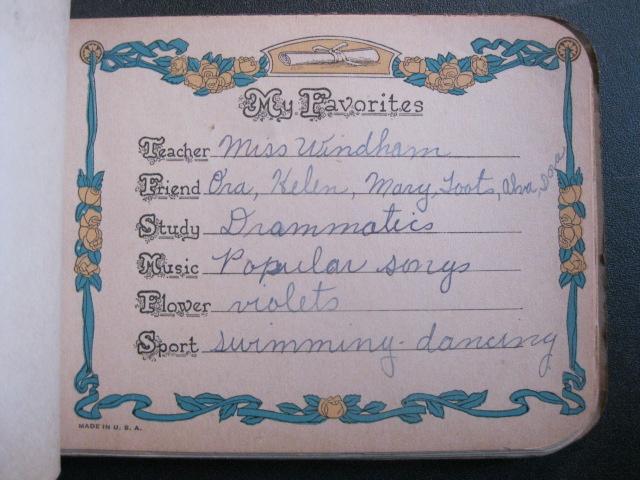 My Favorites
Teacher Miss Windham
Friend Ora, Helen, Mary, Toots, Alva,
Study Drammatics
Music Popular songs
Flower violets
Sport swimming - dancing
MADE IN U. S. A.